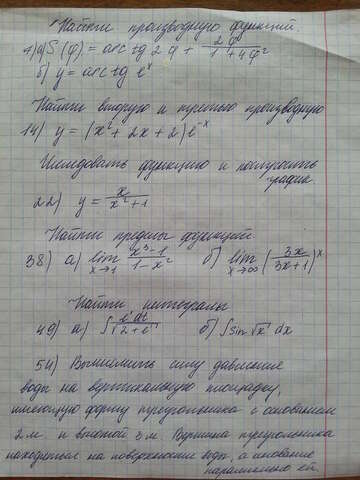 Найти производную функций.
1) а) S(φ) = arctg 2φ + 2φ/(1+4φ²)
б) y = arctg eˣ
Найти вторую и третью производную
14) y = (x² + 2x + 2) e⁻ˣ
Исследовать функцию и построить
график.
22) y = x/(x²+1)
Найти пределы функций
38) а) lim x→1 (x³-1)/(1-x²) б) lim x→∞ (3x/(3x+1))ˣ
Найти интегралы
49) а) ∫ eᵗdt/√(2+eᵗ) б) ∫ sin √x dx
54) Вычислить силу давления
воды на вертикальную площадку,
имеющую форму треугольника с основанием
2 м и высотой 3 м. Вершина треугольника
находится на поверхности воды, а основание
параллельно ей.